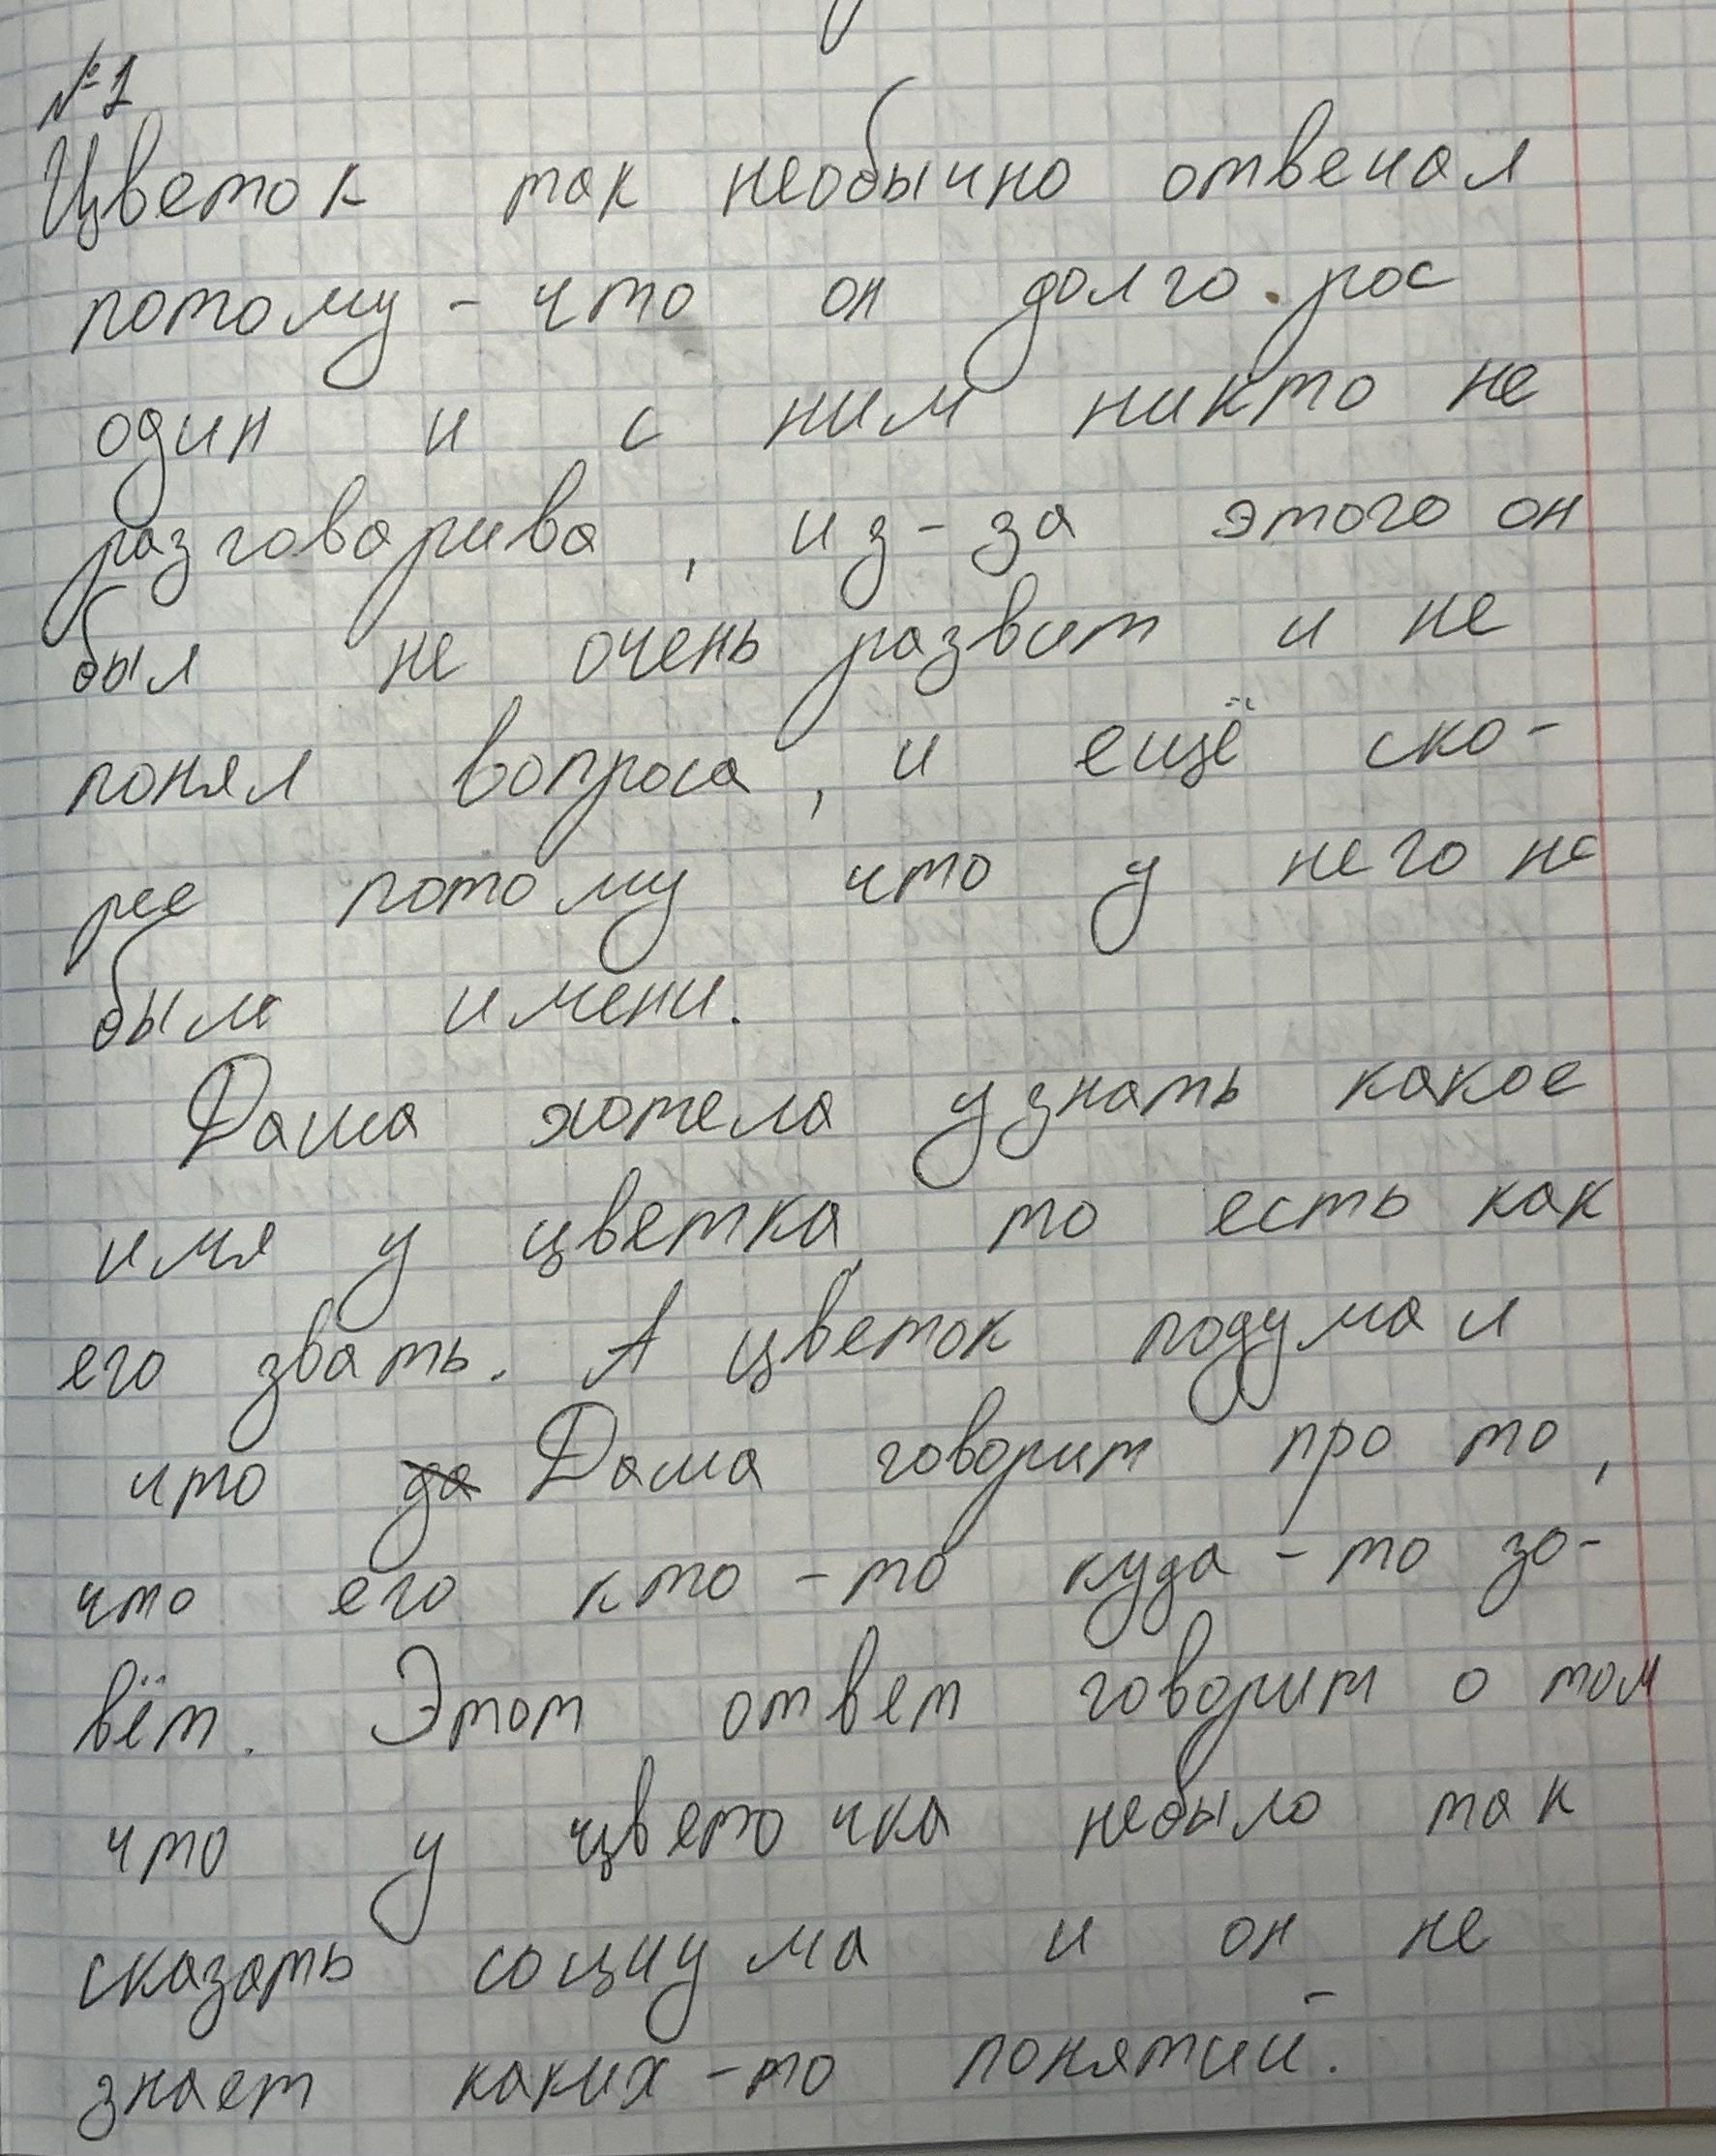 №1
Цветок так необычно отвечал
потому-что он долго рос
один и с ним никто не
разговарива, из-за этого он
был не очень развит и не
понял вопроса, и ещё ско-
рее потому что у него не
было имени.
Даша хотела узнать какое
имя у цветка, то есть как
его звать. А цветок подумал
что да Даша говорит про то,
что его кто-то куда-то зо-
вёт. Этот ответ говорит о том
что у цветочка небыло так
сказать социума и он не
знает каких-то понятий.